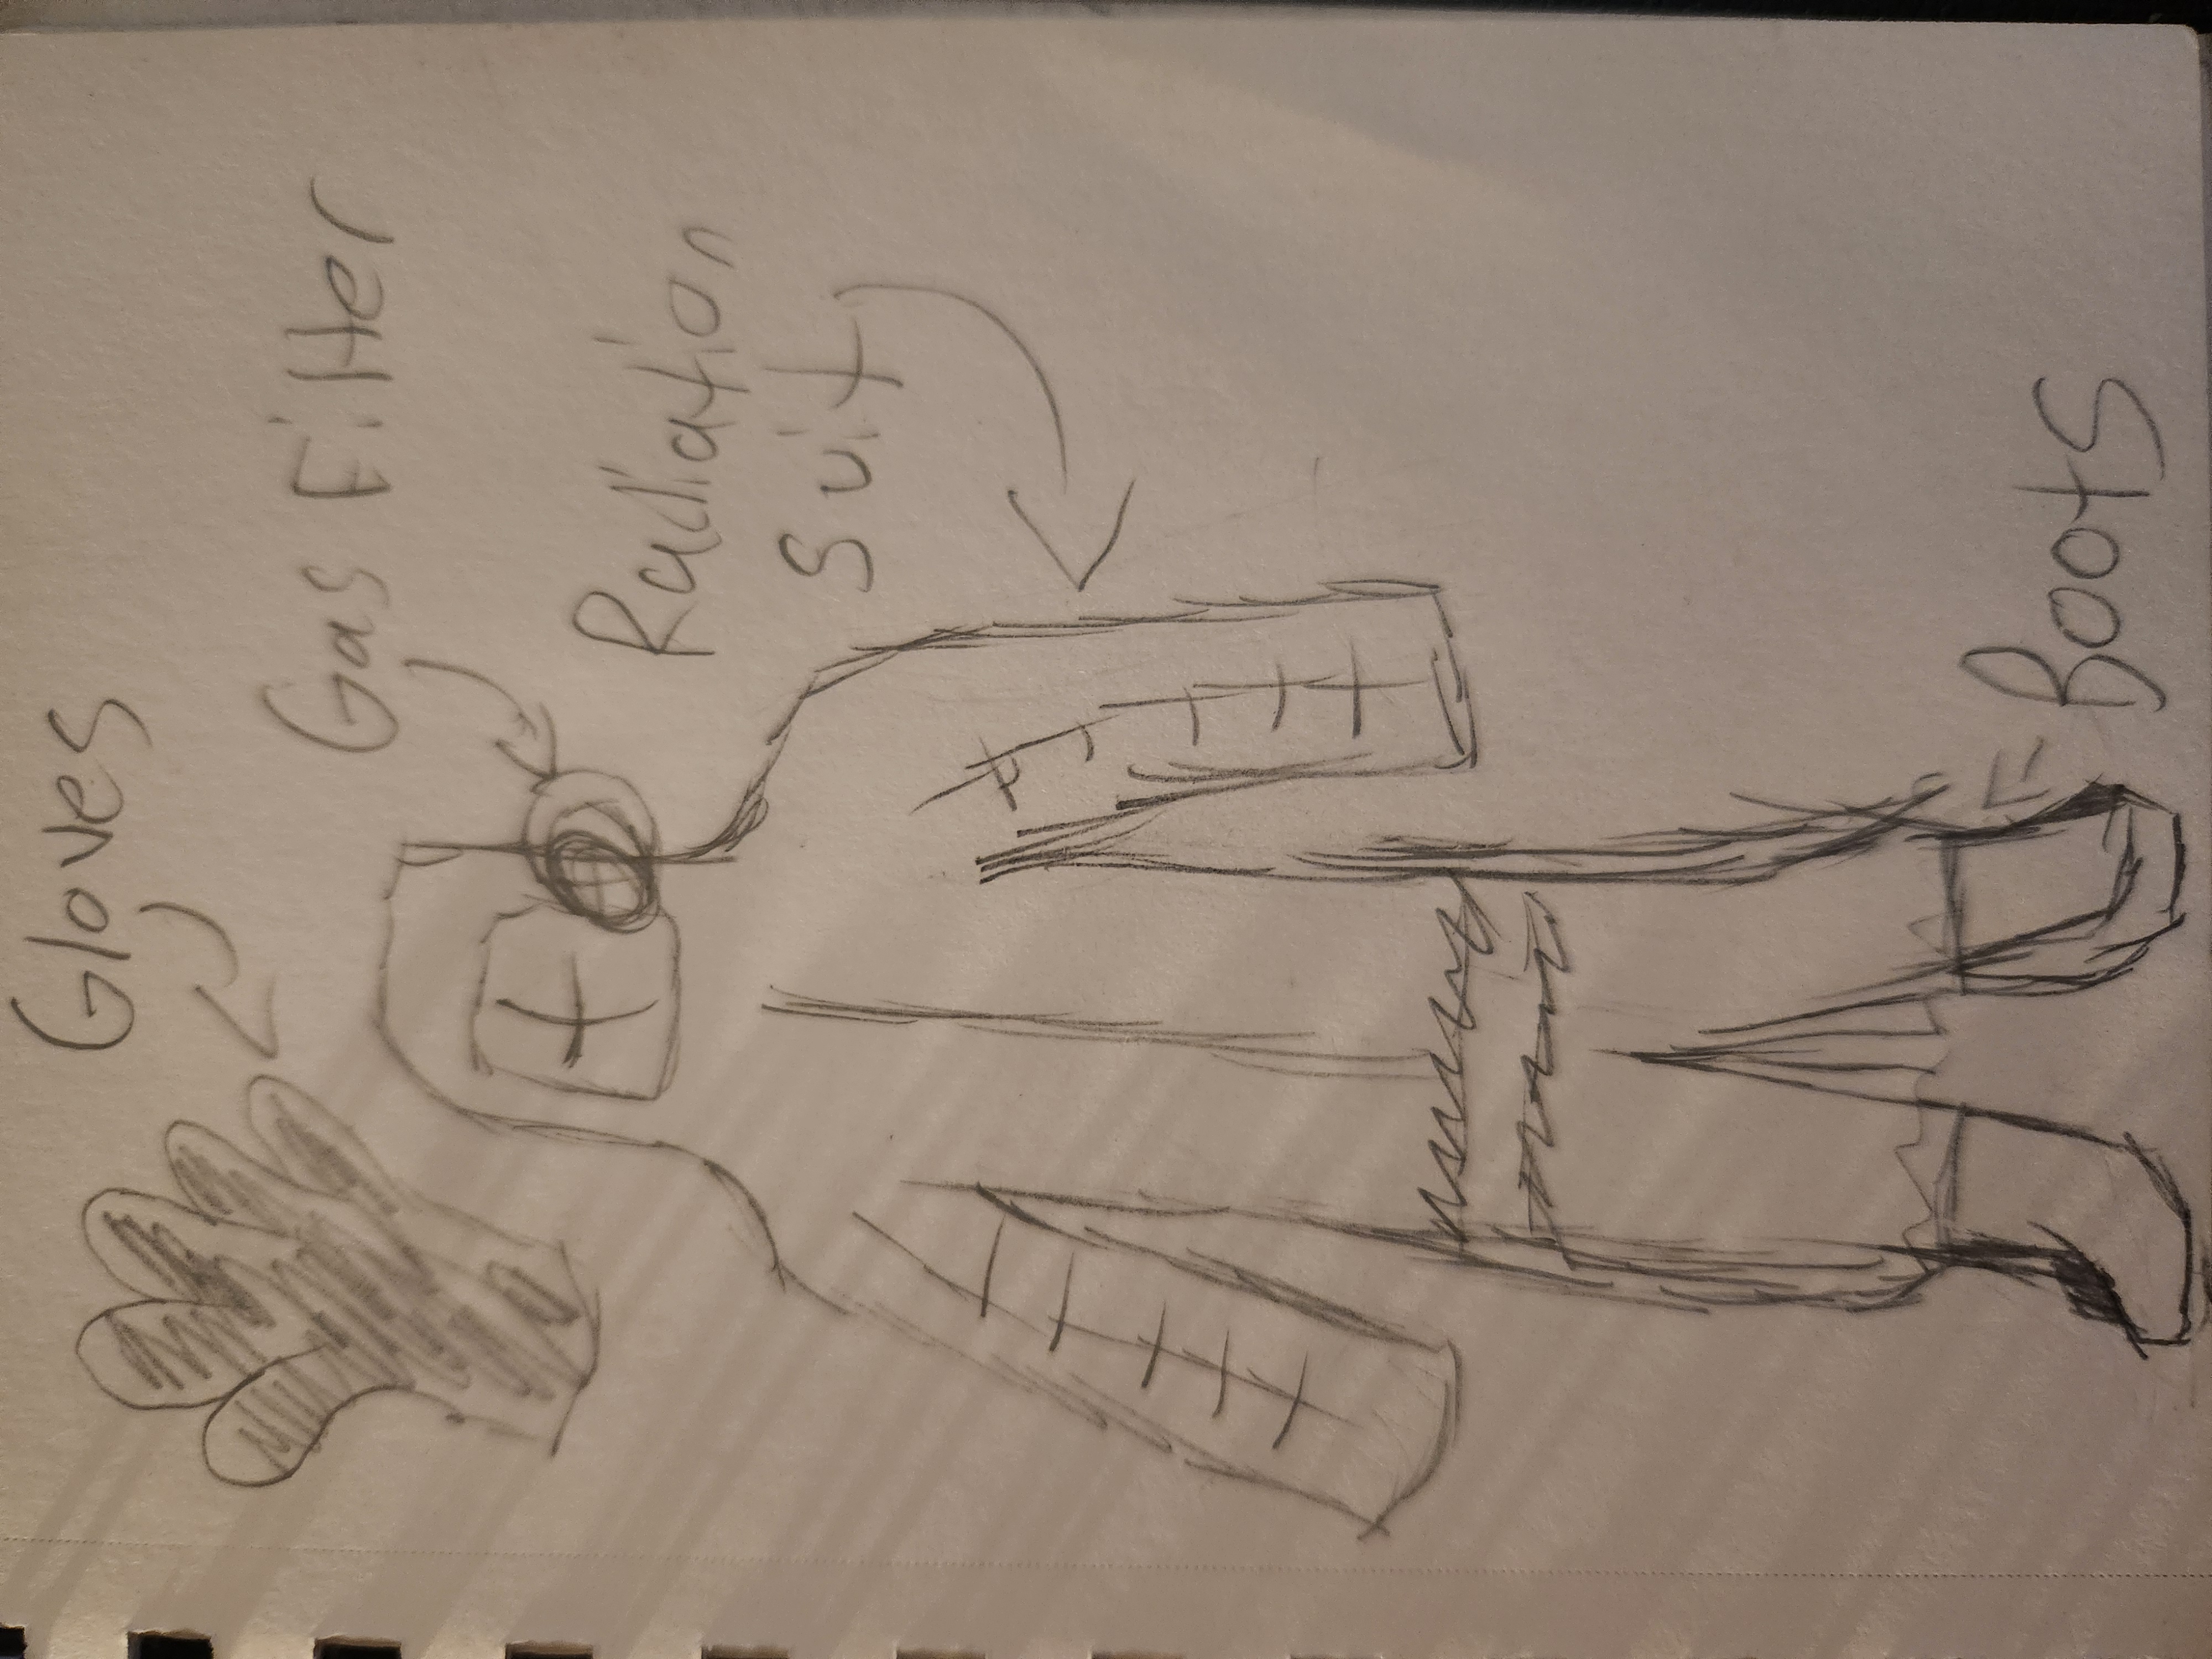 Gloves
Gas Filter
Radiation
Suit
Boots